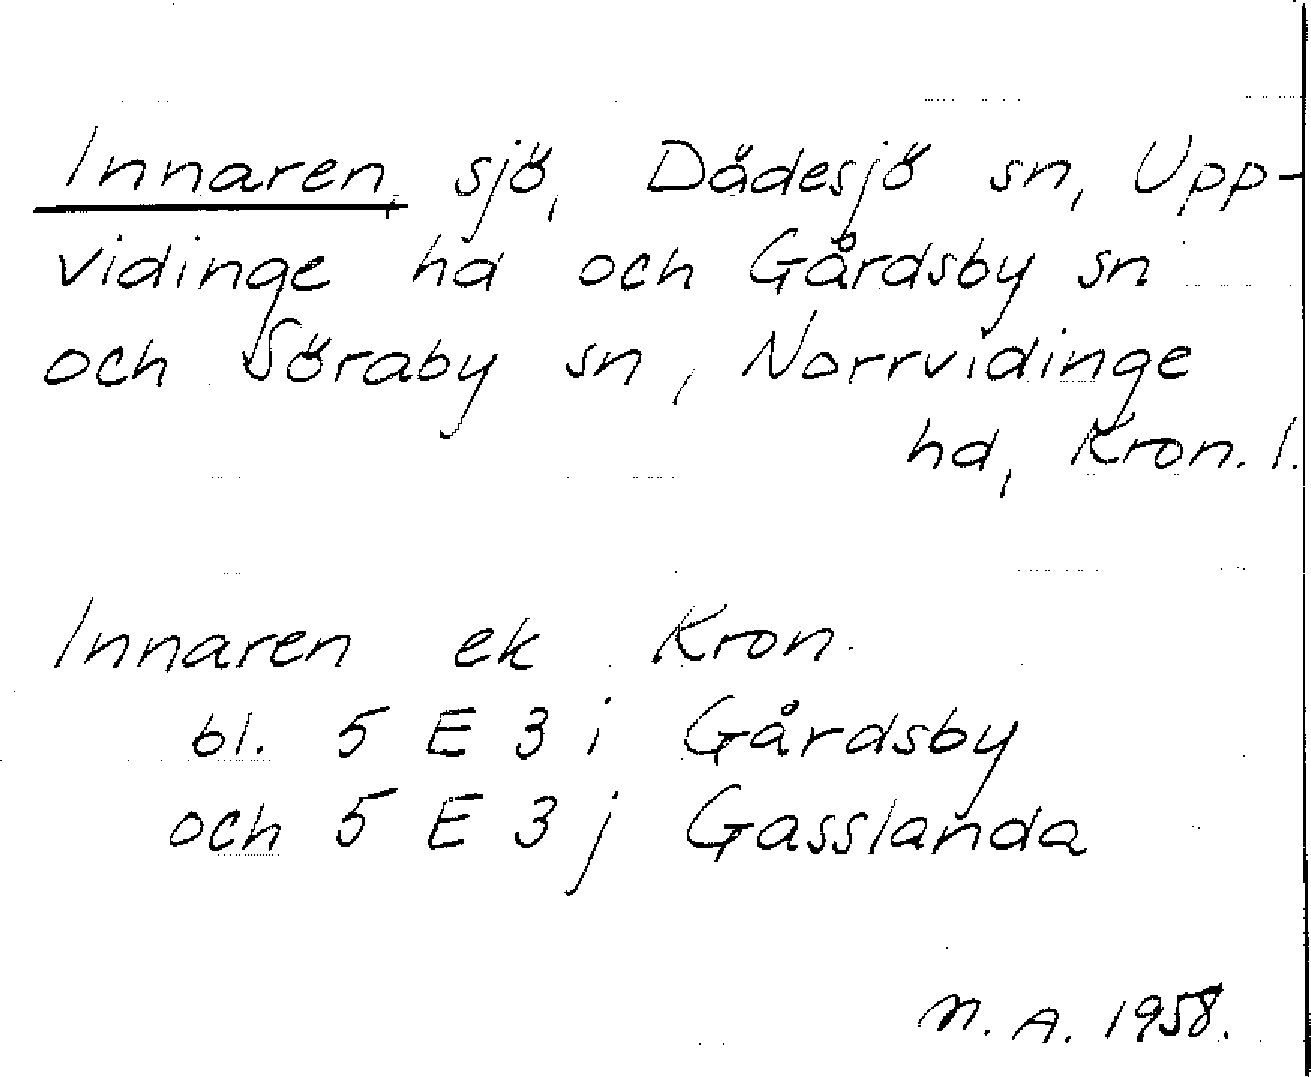 Innaren, sjö, Dädesjö sn, Upp-
vidinge hd och Gårdsby sn
och Söraby sn, Norrvidinge
hd, Kron. l.
Innaren ek Kron.
bl. 5 E 3 i Gårdsby
och 5 E 3 j Gasslanda
N. A. 1958.